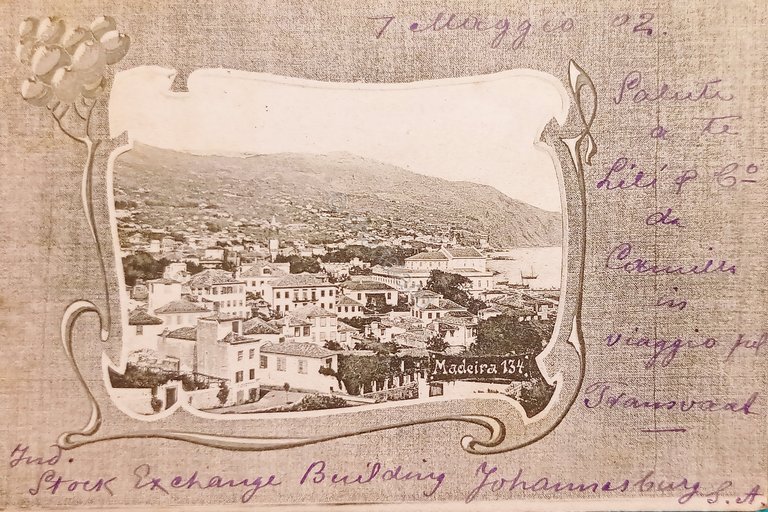 7 Maggio 02.
Saluti
a te
Lili & Co
da
Camillo
in
viaggio pel
Transvaal
Madeira 134
Ind.
Stock Exchange Building Johannesburg S.A.